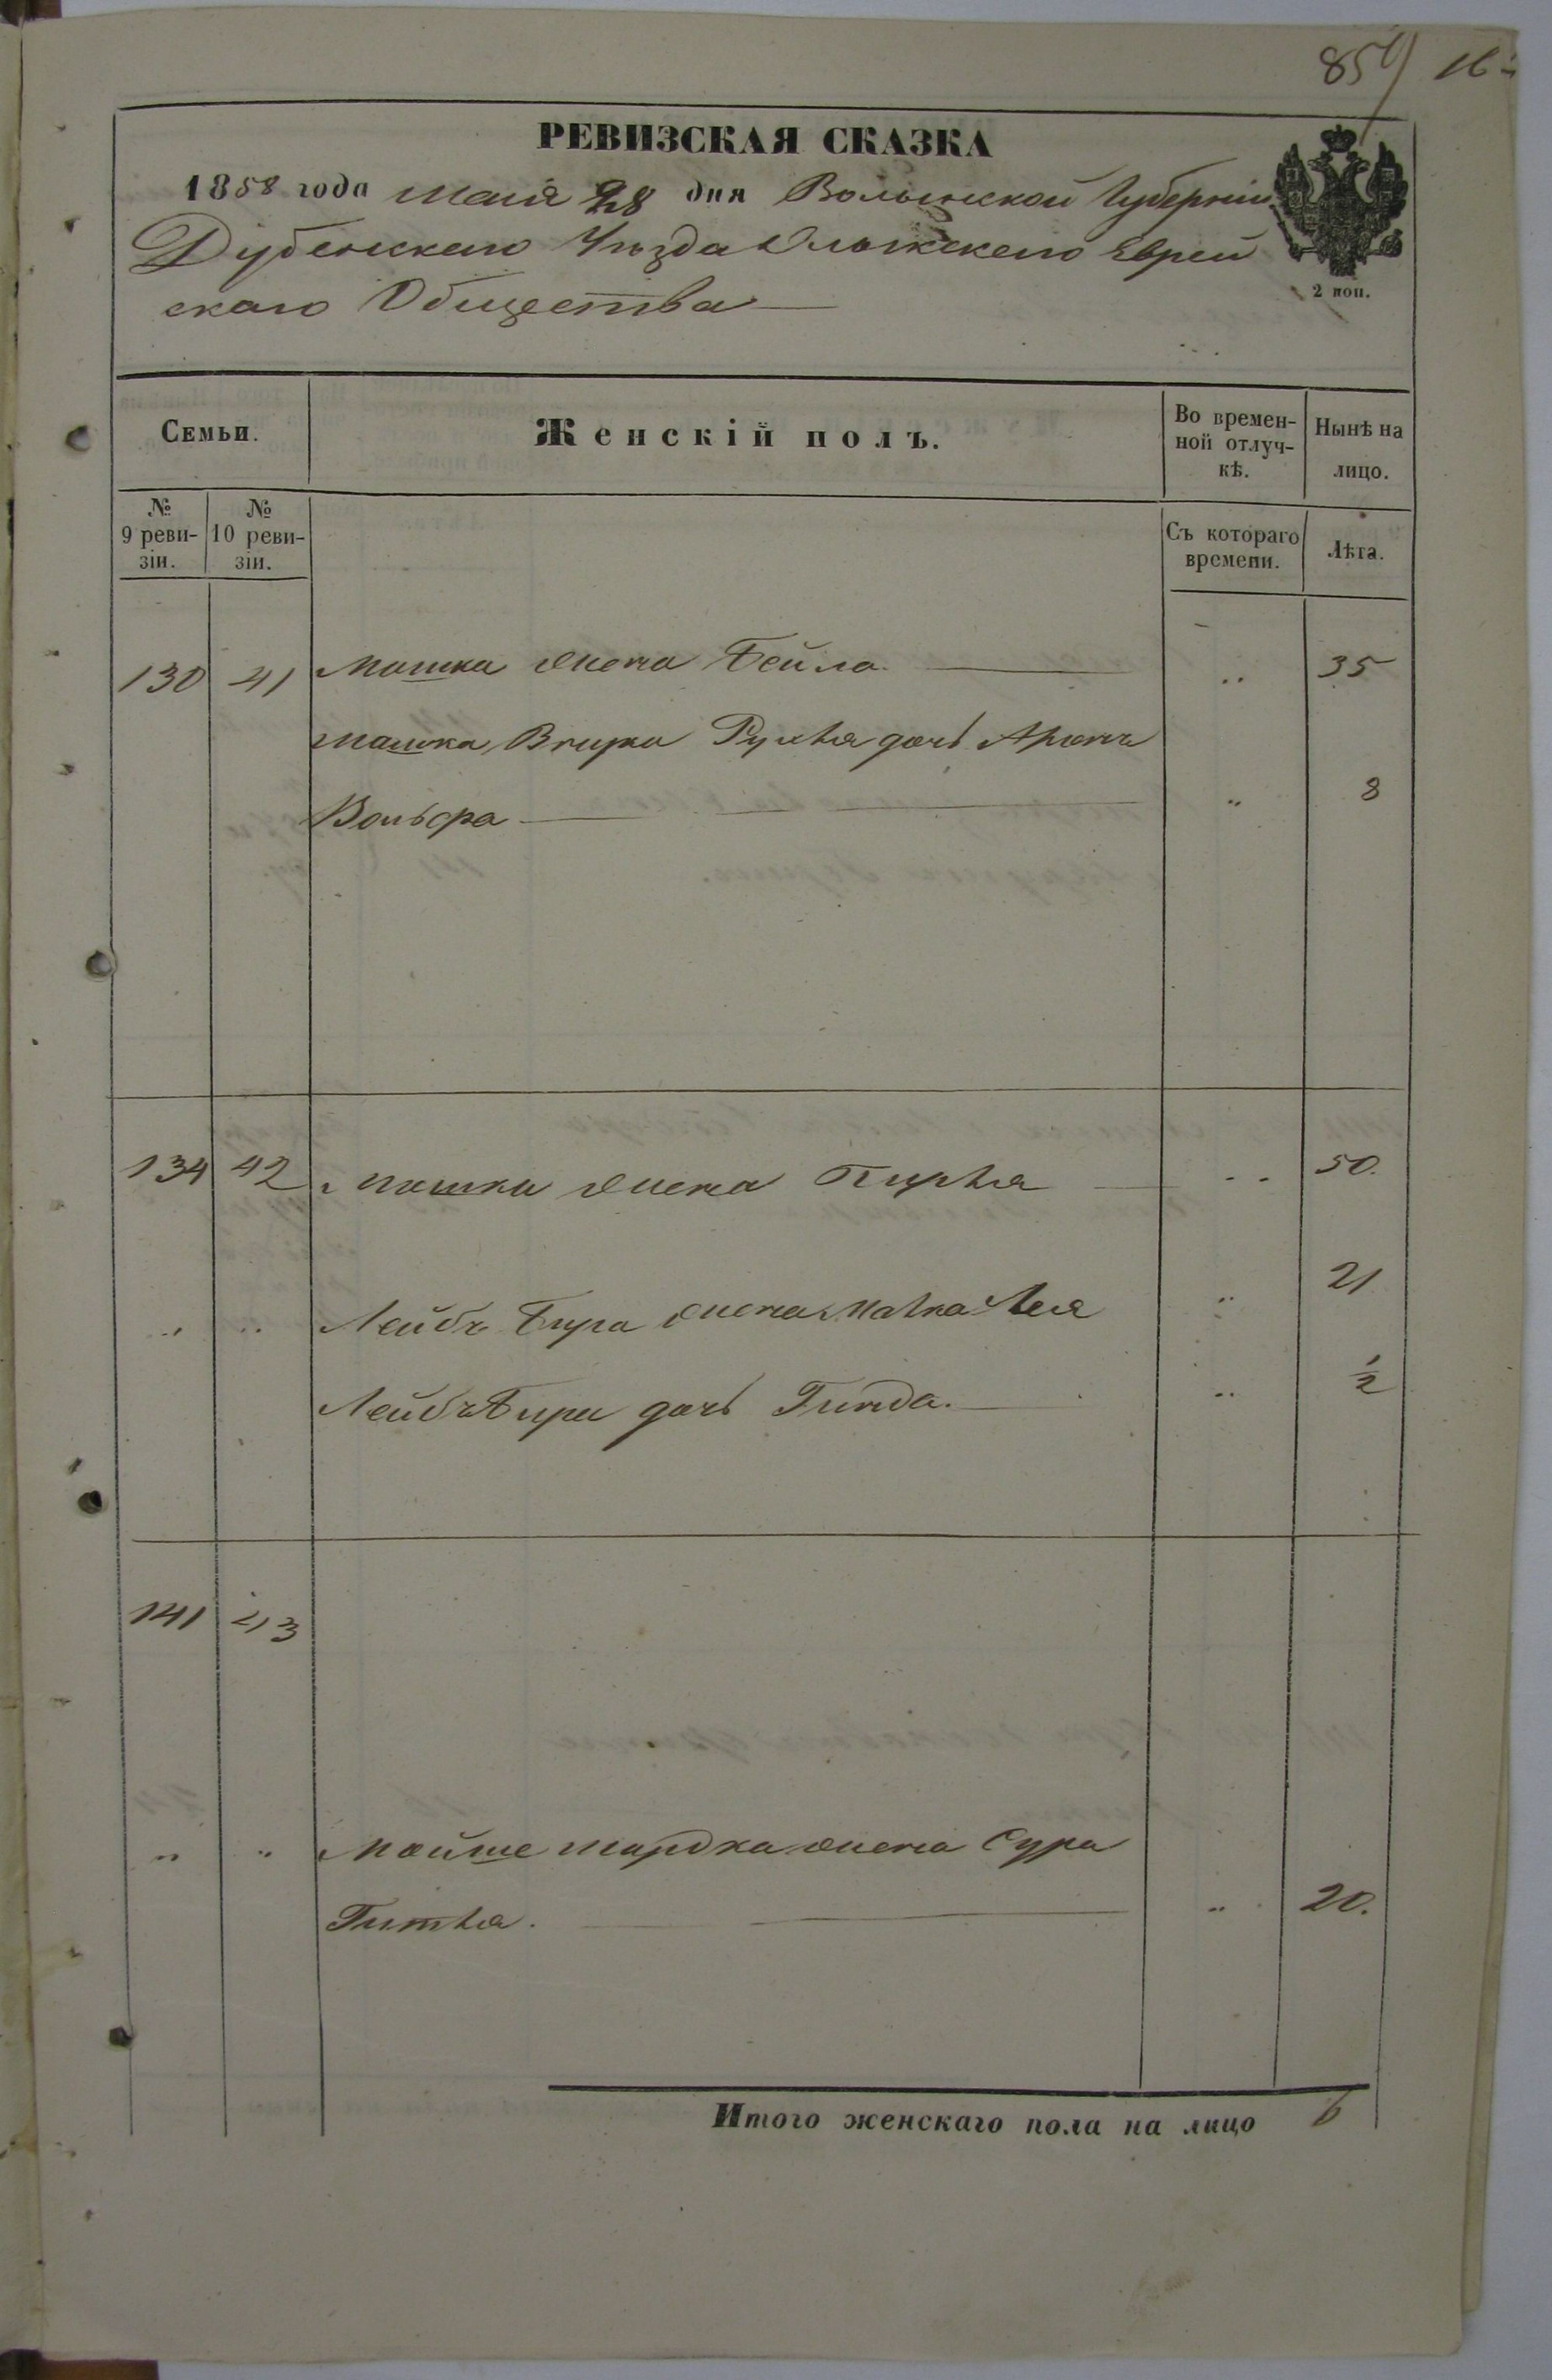 859 16
РЕВИЗСКАЯ СКАЗКА
1858 года маія 28 дня Волынской Губерніи
Дубенскаго Уѣзда Олыкскаго Еврей
скаго Общества
2 коп.
Семьи. Женскій полъ. Во времен-ной отлуч-кѣ. Нынѣ на лицо.
№ 9 реви-зіи. № 10 реви-зіи. Съ котораго времени. Лѣта.
130 41 Мошка жена Бейла " 35
Мошка Внука дочь Арона
Вольфа " 8
134 42 Мошки жена Пирля " 50.
" " Лейбъ Бера жена Малка Лея " 21
Лейбъ Бери дочь Гинда. " 1/2
141 43
" " Мойше Мордка жена Сура
Гитля. " 20.
Итого женскаго пола на лицо 6